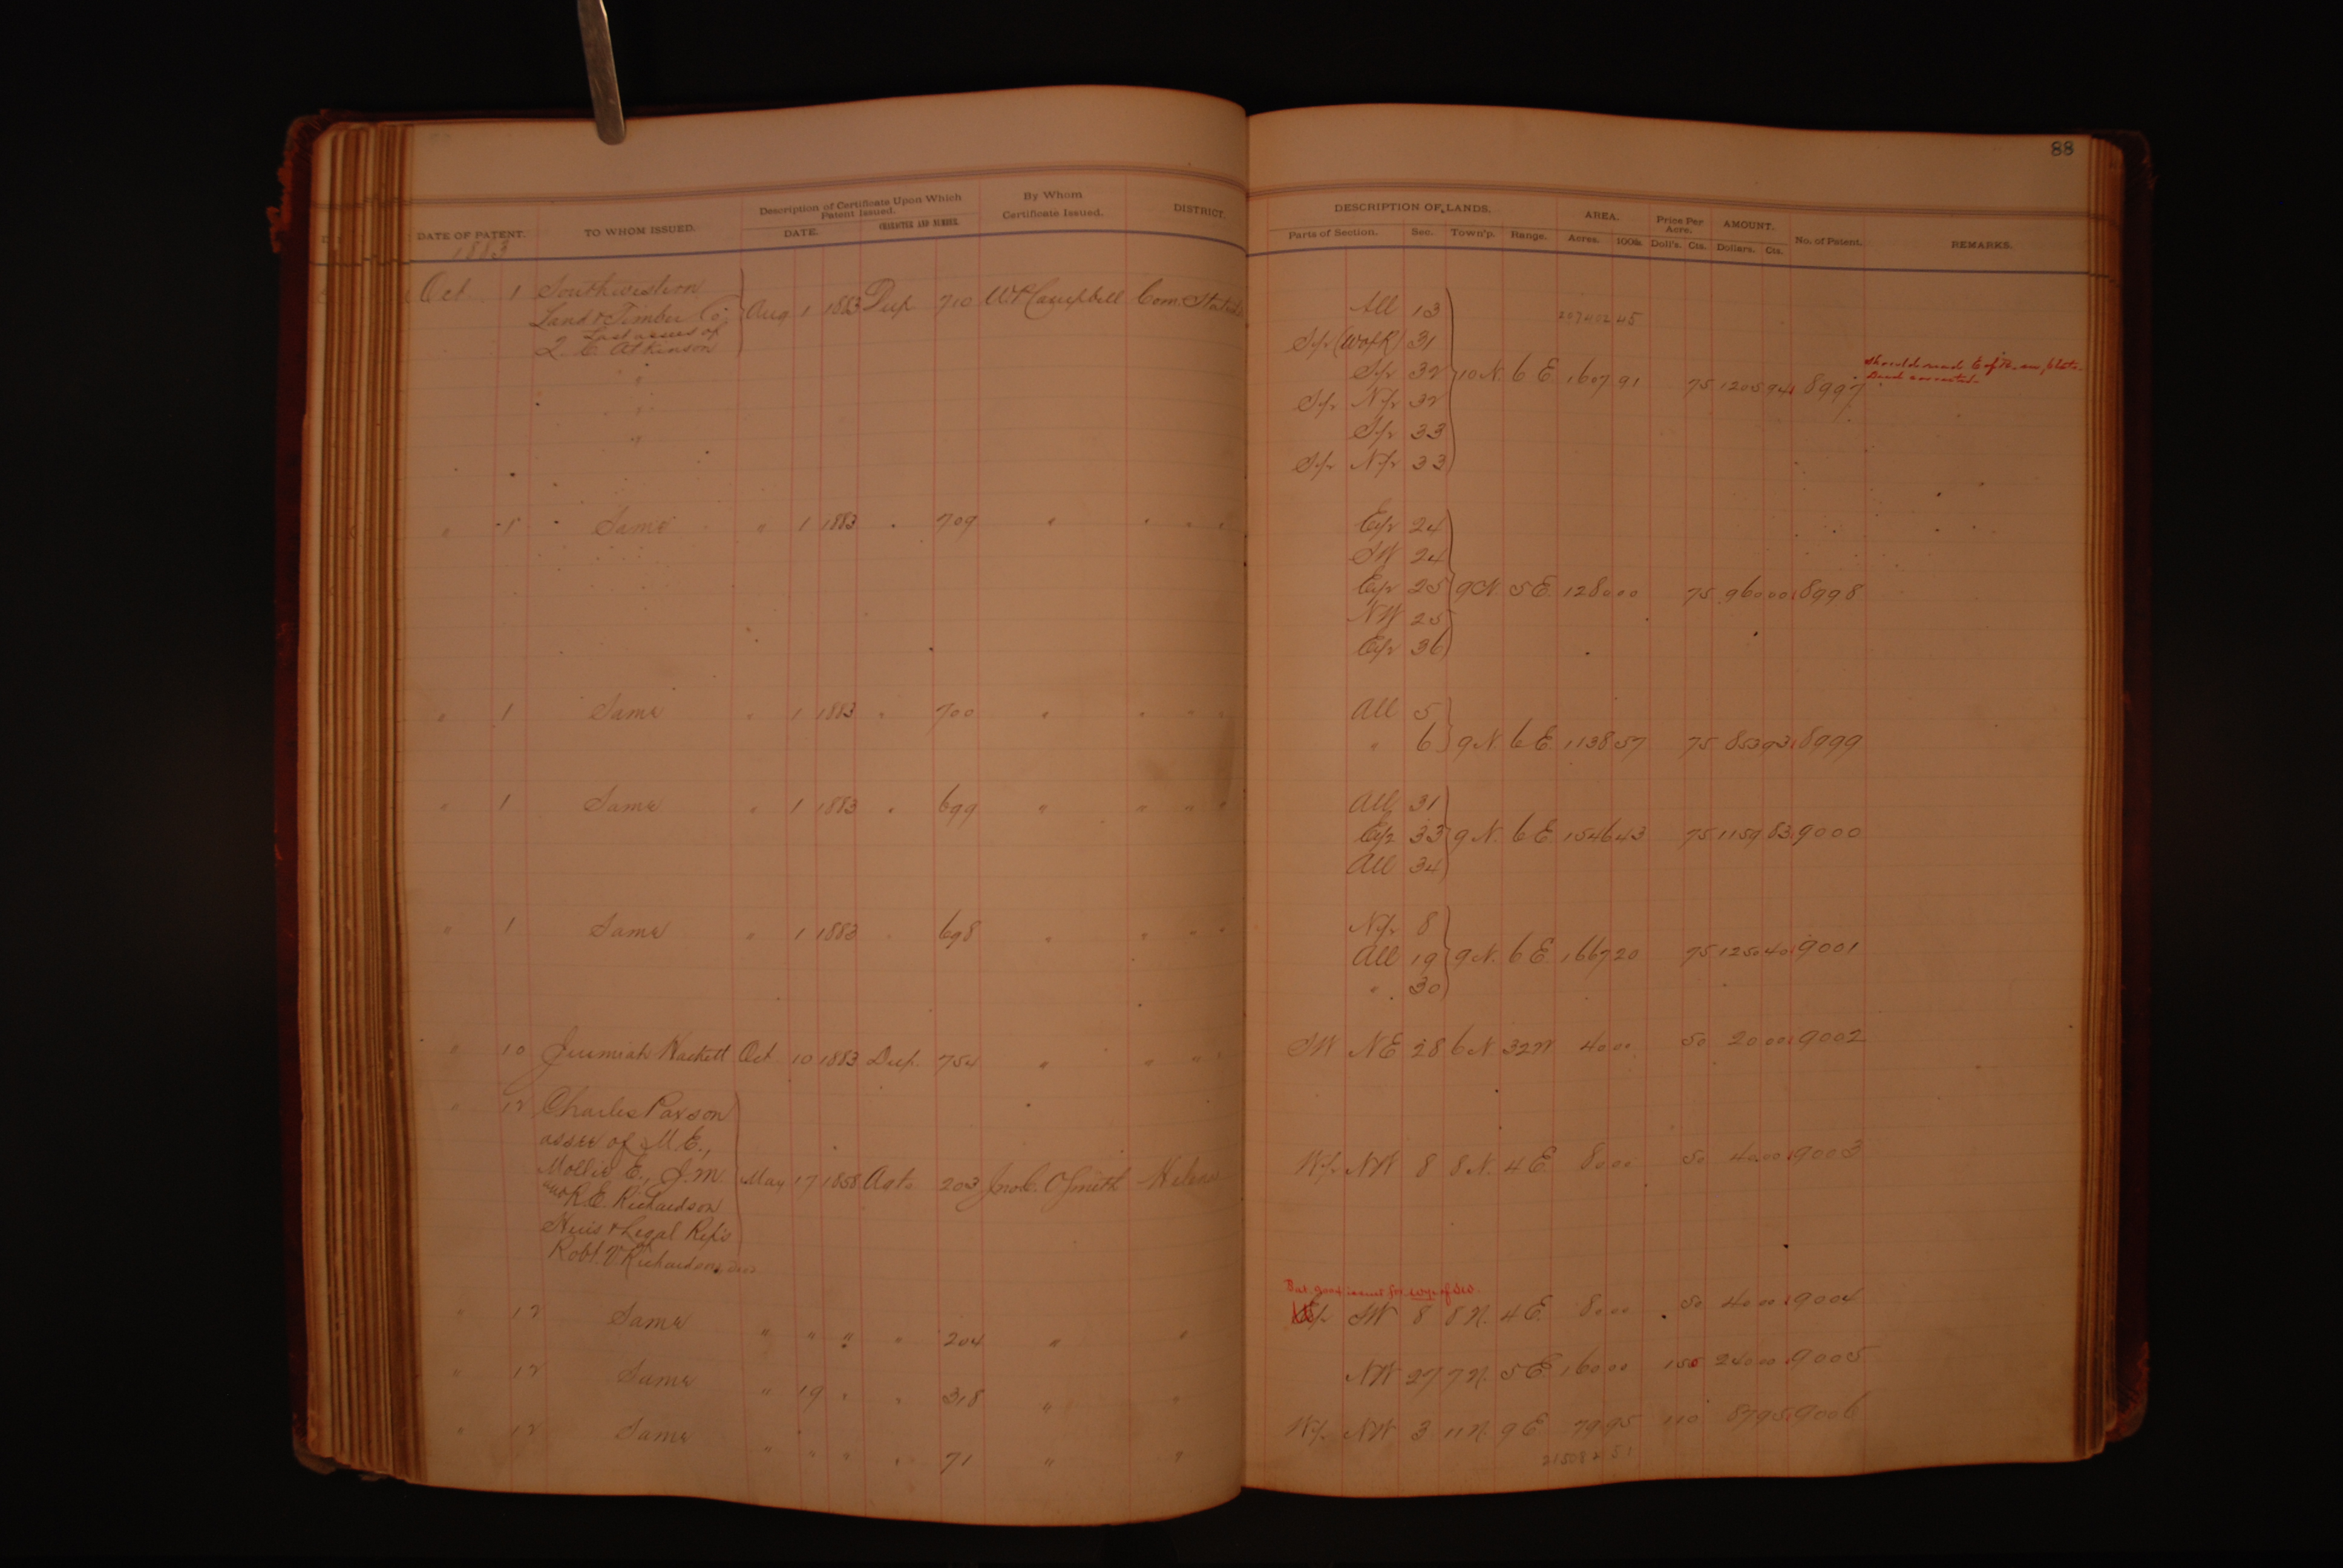 88
DATE OF PATENT. TO WHOM ISSUED. Description of Certificate Upon Which Patent Issued. DATE. CHARACTER AND NUMBER. By Whom Certificate Issued. DISTRICT.
DESCRIPTION OF LANDS. Parts of Section. Sec. Town'p. Range. AREA. Acres. 100ths Price Per Acre. Doll's. Cts. AMOUNT. Dollars. Cts. No. of Patent. REMARKS.
1883
Oct 1 Southwestern Aug 1 1883 Dep 710 Campbell Com. State
Land & Timber Co
Last assee of
L. C. Atkinson
"
"
"
All 13 207402 45
S/2 (W of R) 31
S/2 32 10 N. 6 E 1607 91 75 1205 94 8997
Should read E of R.
S/2 N/2 32
S/2 33
S/2 N/2 33
" 1 Same " 1 1883 " 709 " " " "
E/2 24
SW 24
E/2 25 9 N. 5 E 1280 00 75 960 00 8998
NW 25
E/2 36
" 1 Same " 1 1883 " 700 " " " "
All 5
" 6 9 N. 6 E 1138 57 75 853 93 8999
" 1 Same " 1 1883 " 699 " " " "
All 31
E/2 33 9 N. 6 E 1546 43 75 1159 83 9000
All 34
" 1 Same " 1 1883 " 698 " " " "
N/2 8
All 19 9 N. 6 E 1667 20 75 1250 40 9001
" 30
" 10 Jeremiah Hackett Oct 10 1883 Dep. 754 " " " " SW NE 28 6 N. 32 W 40 00 50 20 00 9002
" 12 Charles Paxson
assee of M. E.,
Mollie E., J. M. May 17 1858 Agts 203 Jno. C. O Smith Helena W/2 NW 8 8 N. 4 E. 80 00 50 40 00 9003
and R. E. Richardson
Heirs & Legal Rep's
of
Robt. V. Richardson, Decd
" 12 Same " " " " 204 " " SW 8 8 N. 4 E. 80 00 50 40 00 9004
" 12 Same " 19 " " 318 " " NW 27 7 N. 5 E 160 00 1 50 240 00 9005
" 12 Same " " " " 71 " " W/2 NW 3 11 N. 9 E 79 95 1 10 87 95 9006
215082 51